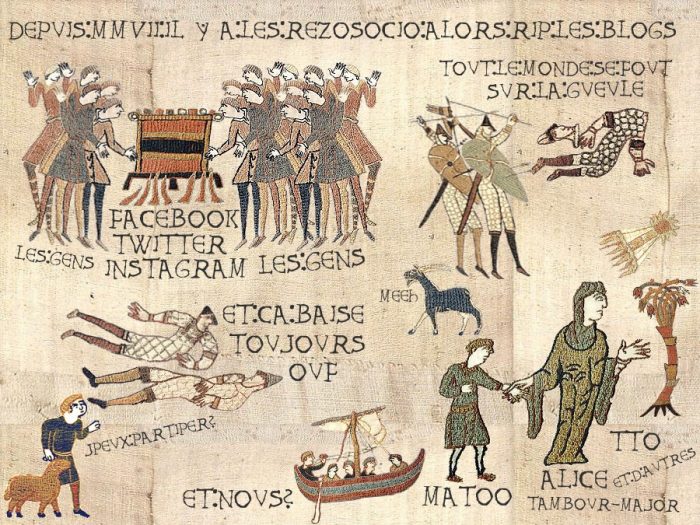 DEPVIS:MMVII:IL Y A:LES:REZOSOCIO:ALORS:RIP:LES:BLOGS
TOVT:LE:MONDE:SE:FOVT
SVR:LA:GVEVLE
FACEBOOK
TWITTER
INSTAGRAM
LES:GENS
LES:GENS
MEEH
ET:CA:BAISE
TOVJOVRS
OVF
JPEVX:PARTIPER?
ET:NOVS?
MATOO
TTO
ALICE
ET:D'AVTRES
TAMBOVR-MAJOR